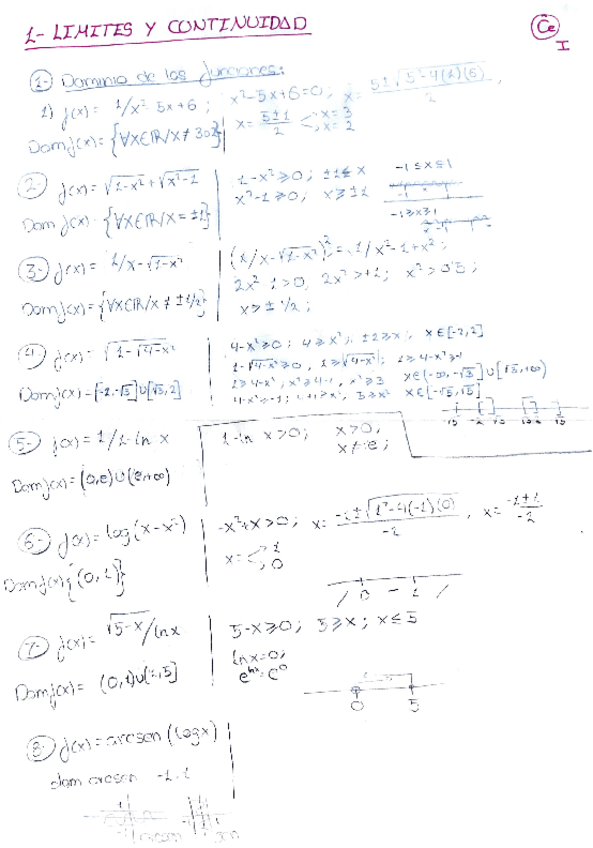 1- LIMITES Y CONTINUIDAD
Ce
I
1- Dominio de las funciones:
1) f(x) = 1/x²-5x+6 ; x²-5x+6=0; x= 5±√5²-4(1)(6) / 2
Dom f(x) = {∀x∈ℝ/x≠3 2} x= 5±1 / 2 < x=3 x=2
2- f(x) = √1-x² + √x²-1 1-x²≥0; ±1≤x -1≤x≤1
Dom f(x) {∀x∈ℝ/x=±1} x²-1≥0; x≥±1 -1≥x≥1
3- f(x) = 1/x-√1-x² (x/x-√1-x²)² = 1/x²-1+x² ;
2x²-1>0, 2x²>+1; x²>0'5 ;
Dom f(x) = {∀x∈ℝ/x≠±1/2} x>±1/2 ;
4- f(x) = √1-√4-x² 4-x²≥0; 4≥x²; ±2≥x; x∈[-2,2]
1-√4-x²≥0, 1≥√4-x²; 1≥4-x²≥-1
Dom f(x) = [-2,-√3]∪[√3,2] 1≥4-x², x²≥4-1, x²≥3 x∈(-∞,-√3]∪[√3,+∞)
4-x²≥-1; 4+1≥x², 5≥x² x∈[-√5,√5]
5- f(x) = 1/1-ln x 1-ln x>0; x>0,
x≠e;
Dom f(x) = (0,e)∪(e,+∞)
6- f(x) = log(x-x²) -x²+x>0; x= -1±√1²-4(-1)(0) / -2 , x= -1±1 / -2
x= < 1 0
Dom f(x) {(0,1)}
0 - 1
7- f(x) = √5-x/ln x 5-x≥0; 5≥x; x≤5
ln x=0;
Dom f(x) = (0,1)∪(1,5] e^lnx = e⁰
0 5
8- f(x) = arcsen(log x)
dom arcsen -1,1